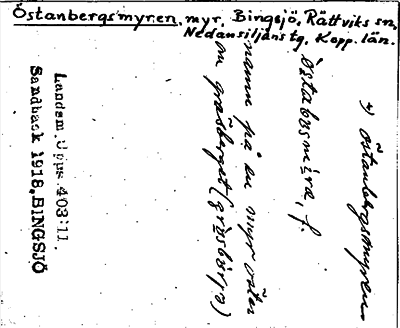 Östanbergsmyren, myr, Bingsjö, Rättviks sn,
Nedansiljans tg, Kopp. län.
*) Östanbergsmyren
f.
namn på en myr öster
om gråsberget (gråsbärjə)
Landsm Upps 403:11.
Sandback 1918, BINGSJÖ